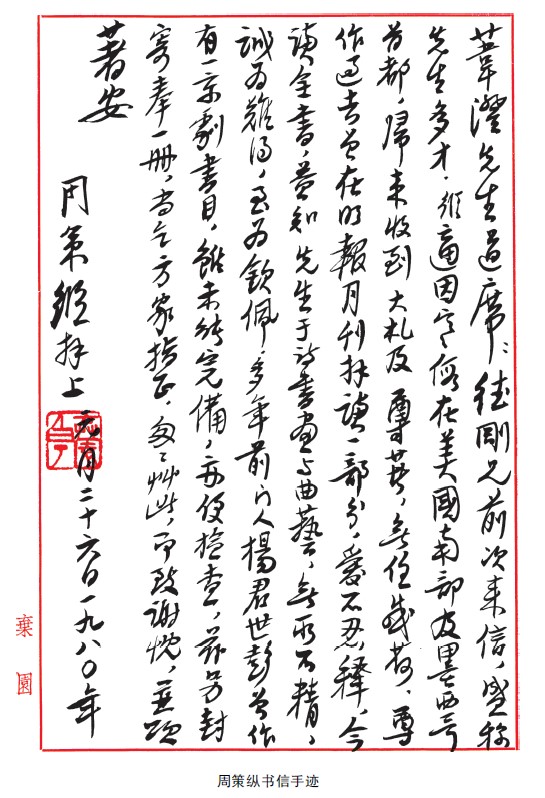 葦澄先生道席：德剛兄前次來信，盛称
先生多才，縱適因寒假在美國南部及墨西哥
首都，歸來收到 大札及 尊著，無任感荷，尊
作過去曾在明報月刊拜讀一部分，愛不忍釋，今
讀全書，益知 先生于詩書畫与曲藝，無所不精，
誠为難得，至为欽佩，多年前门人楊君世彭曾作
有一京劇書目，雖未能完備，亦便檢查，茲另封
寄奉一冊，尚乞方家指正，匆匆艸此，即致謝忱，並頌
著安
周策縱拜上 元月二十六日一九八〇年
棄園
周策纵书信手迹